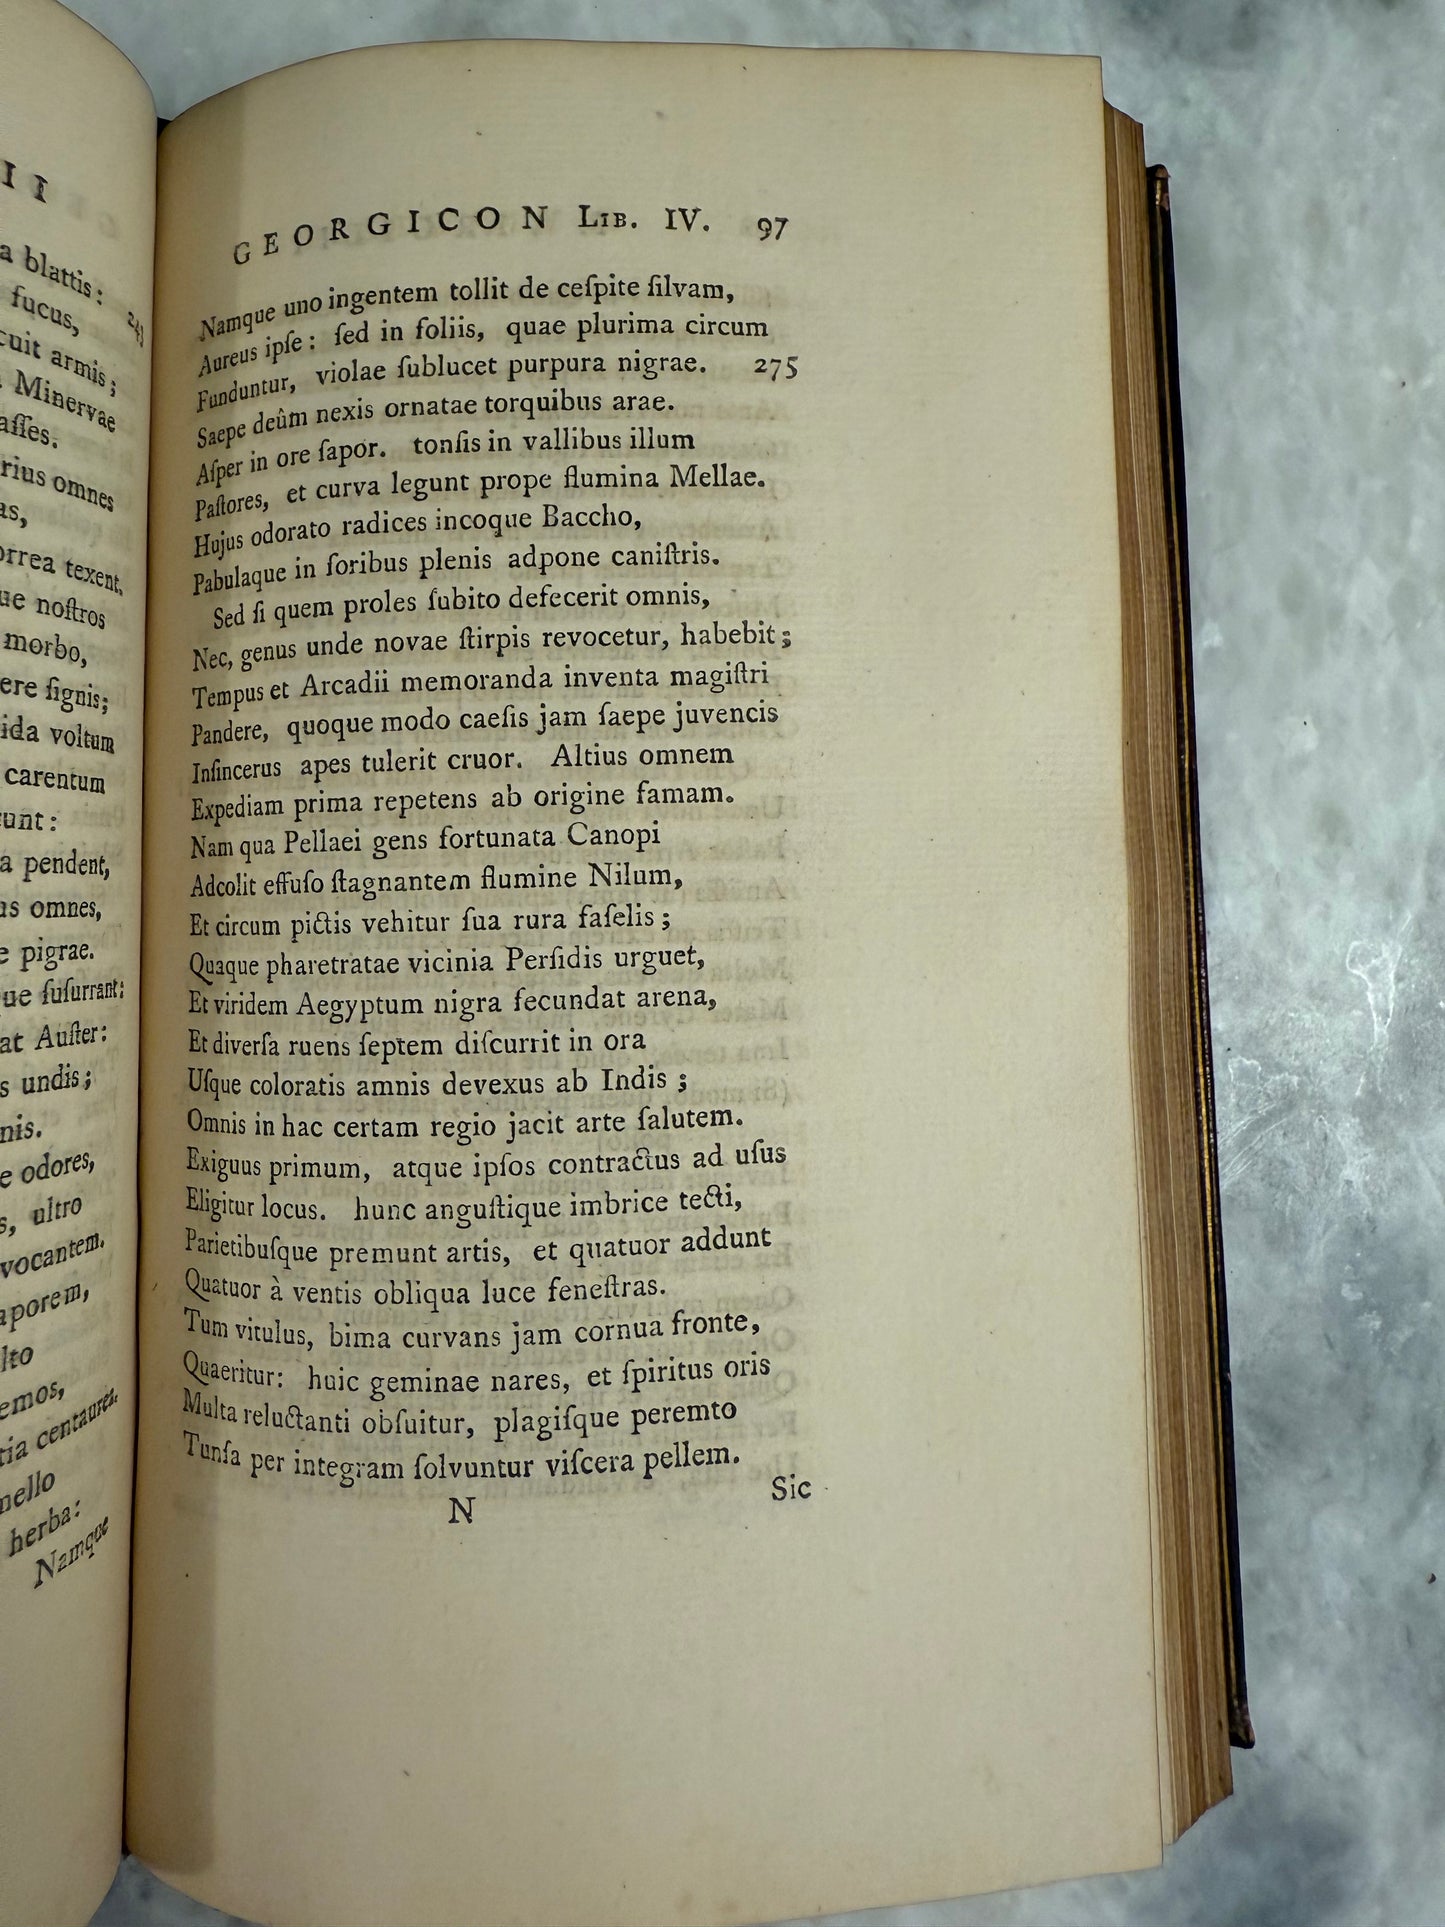 II
a blattis:
fucus,
cuit armis;
Minervae
aſſes.
rius omnes
as,
orrea texent.
ue noſtros
morbo,
ere ſignis;
ida voltum
carentum
unt:
a pendent,
us omnes,
e pigrae.
ue ſuſurrant:
at Auſter:
s undis;
nis.
e odores,
s, ultro
vocantem.
aporem,
lto
emos,
tia centaurea.
mello
herba:
Namque
GEORGICON LIB. IV. 97
Namque uno ingentem tollit de ceſpite ſilvam,
Aureus ipſe: ſed in foliis, quae plurima circum
Funduntur, violae ſublucet purpura nigrae. 275
Saepe deûm nexis ornatae torquibus arae.
Aſper in ore ſapor. tonſis in vallibus illum
Paſtores, et curva legunt prope flumina Mellae.
Hujus odorato radices incoque Baccho,
Pabulaque in foribus plenis adpone caniſtris.
Sed ſi quem proles ſubito defecerit omnis,
Nec, genus unde novae ſtirpis revocetur, habebit;
Tempus et Arcadii memoranda inventa magiſtri
Pandere, quoque modo caeſis jam ſaepe juvencis
Inſincerus apes tulerit cruor. Altius omnem
Expediam prima repetens ab origine famam.
Nam qua Pellaei gens fortunata Canopi
Adcolit effuſo ſtagnantem flumine Nilum,
Et circum pictis vehitur ſua rura faſelis;
Quaque pharetratae vicinia Perſidis urguet,
Et viridem Aegyptum nigra fecundat arena,
Et diverſa ruens ſeptem diſcurrit in ora
Uſque coloratis amnis devexus ab Indis;
Omnis in hac certam regio jacit arte ſalutem.
Exiguus primum, atque ipſos contractus ad uſus
Eligitur locus. hunc anguſtique imbrice tecti,
Parietibuſque premunt artis, et quatuor addunt
Quatuor à ventis obliqua luce feneſtras.
Tum vitulus, bima curvans jam cornua fronte,
Quaeritur: huic geminae nares, et ſpiritus oris
Multa reluctanti obſuitur, plagiſque peremto
Tunſa per integram ſolvuntur viſcera pellem.
N Sic